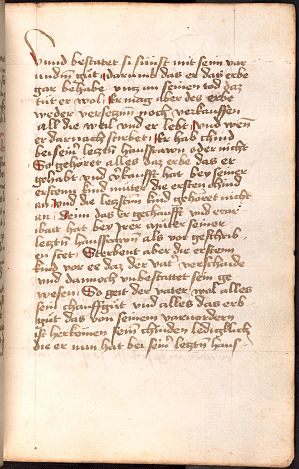 Vnnd bestatet si sunst mit seim var
unden gut Darumb das er das erbe
gar behabe untz an seinen tod daz
tut er wol Er mag aber des erbe
weder versetzen noch verkauffen
all die weil und er lebt Und wen
er darnach stirbet Er hab chind
bei seiner letzten hausfrawn oder nicht
So gehoret alles daz erbe das er
gehabt und chauft hat bey seiner
ersten kind muter die ersten chind
an Und die letzsten kind gehort nicht
an Denn das er gechauft und
hat bey Irer muter seiner
letzten hausfrawn als vor geschrib
en stet Sterbent aber die ersten
kind vor ee daz der vater verschaide
und dannoch unbestattet sein ge
wesen So geit der vater wol alles
sein chauffgut und alles das erb
gut das von seinen varvordern
ist herkomen sein chinden lediglich
die er nun hat bei seiner letzten haus